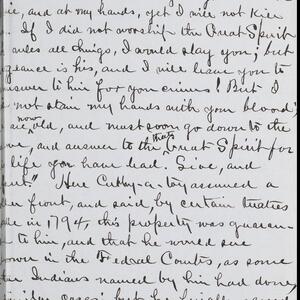 and at my hands, yet I will not kill
If I did not worship the Great Spirit
rules all things, I would slay you; but
geance is his, and I will leave you to
answer to him for your crimes! But I
not stain my hands with your blood;
now old, and must soon go down to the
and answer to that Great Spirit for
life you have lead. Live, and
Here Cubby-a-toy assumed a
front, and said, by certain treaties
in 1794, this property was guaran-
to him, and that he would sue
in the Federal Courts, as some
Indians named by him had done,
but he finally